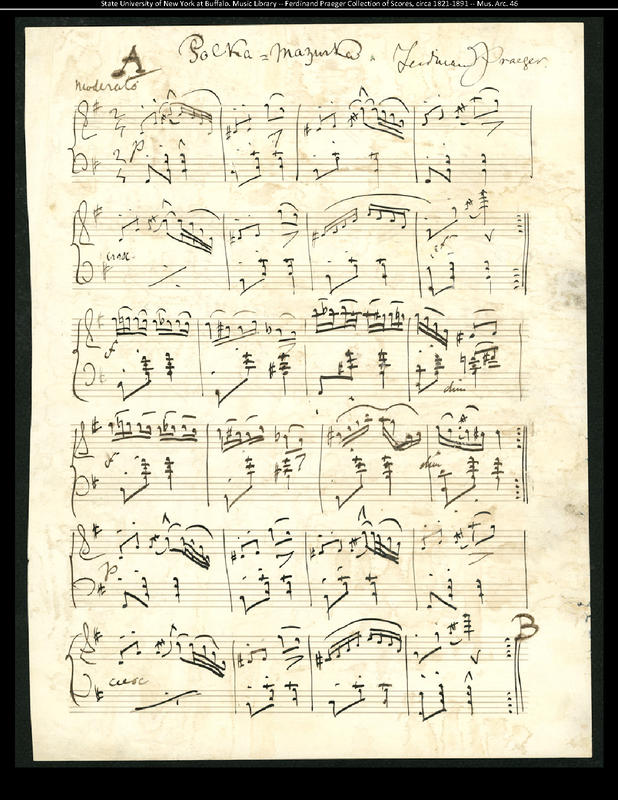 State University of New York at Buffalo. Music Library -- Ferdinand Praeger Collection of Scores, circa 1821-1891 -- Mus. Arc. 46
A Polka = Mazurka. Ferdinand Praeger
Moderato
p
cresc
sf
f
dim
f
dim
p
B
cresc